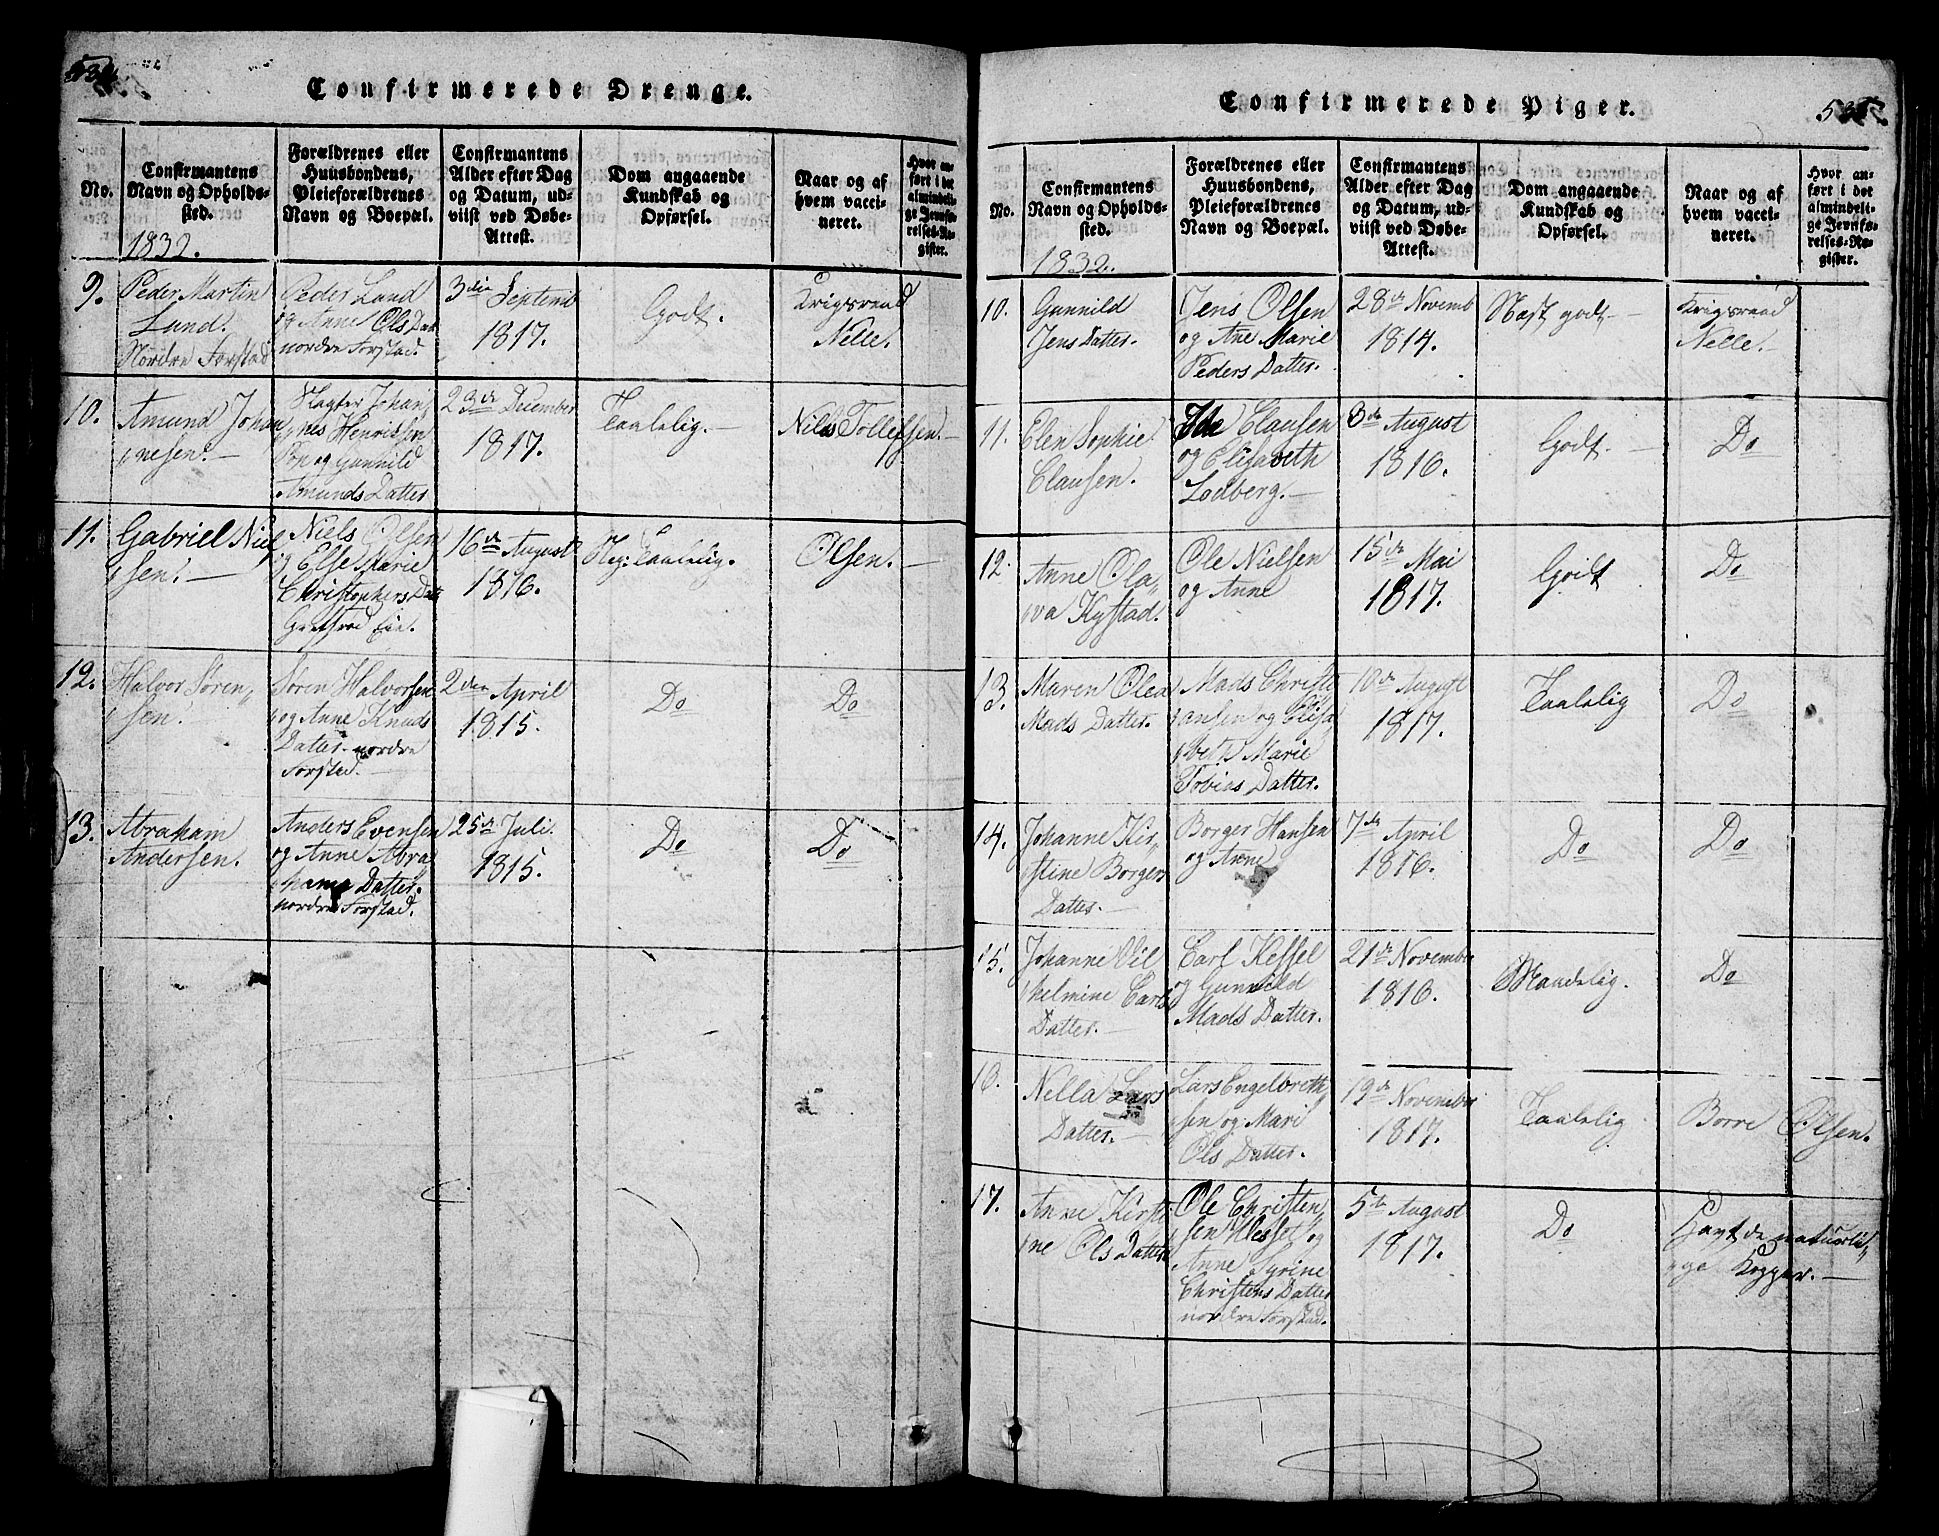 Confirmerede Drenge.
No.
Confirmantens
Navn og Opholds-
sted.
Forældrenes eller
Huusbondens,
Pleieforældrenes
Navn og Boepæl.
Confirmantens
Alder efter Dag
og Datum, ud-
viist ved Døbe-
Attest.
Dom angaaende
Kundskab og
Opførsel.
Naar og af
hvem vacci-
neret.
Hvor an-
ført i det
almindeli-
ge Jevnfø-
relses-Re-
gister.
1832.
9.
Peder Martin
Lund.
Nordre Forstad
Peder Lund
og Anne Ols Datt
nordre Forstad.
3die Septemb
1817.
Godt.
Krigsraad
Nelle.
10.
Amund Johan
nesen.
Slagter Johan
nes Henrissen
og Gunnild
Amunds Datter
23de December
1817.
Taalelig.
Niels Tollefsen.
11.
Gabriel Niel
sen.
Niels Olsen
og Else Marie
Christophers Datt
16de August
1816.
Meg: Taalelig.
Olsen.
12.
Halvor Søren„
sen.
Søren Halvorsen
og Anne Knuds
Datter nordre
Forstad.
2den April
1815.
Do
Do
13.
Abraham
Andersen.
Anders Evensen
og Anne Abra
hams Datter.
nordre Forstad.
25de Juli.
1815.
Do
Do
Confirmerede Piger.
No.
Confirmantens
Navn og Opholds-
sted.
Forældrenes eller
Huusbondens,
Pleieforældrenes
Navn og Boepæl.
Confirmantens
Alder efter Dag
og Datum, ud-
viist ved Døbe-
Attest.
Dom angaaende
Kundskab og
Opførsel.
Naar og af
hvem vacci-
neret.
Hvor an-
ført i det
almindeli-
ge Jevnfø-
relses-Re-
gister.
1832.
10.
Gunnild
Jens Datter.
Jens Olsen
og Ane Marie
Peders Datter.
28de Novemb
1814.
Mest godt
Krigsraad
Nelle.
11.
Elen Sophie
Clausen.
Clausen
og Elisabeth
Lodberg.
3de August
1816.
Godt.
Do
12.
Anne Ola„
va Kystad.
Ole Nielsen
og Anne
15de Mai
1817.
Godt
Do
13.
Maren Olea
Mads Datter.
Mads Christi
ansen og Elisa
beth Marie
Tobias Datter.
10de August
1817.
Taalelig
Do
14.
Johanne Kir„
stine Borgers
Datter.
Borger Hansen
og Anne
7de April
1816.
Do
Do
15.
Johanne Vil
helmine Carls
Datter.
Carl Kessel
og Gunnild
Mads Datter.
21de Novembr
1816.
Maadelig.
Do
16.
Nella Lars
Datter.
Lars Engelbreth„
sen og Mari
Ols Datter.
19de November
1817.
Taalelig
Borre Olsen.
17.
Anne Kirsti
ne Ols Datter
Ole Christen„
sen Klessel og
Anne Syrine
Christens Datter
nordre Forstad.
5te August
1817.
Do
Havt de naturli„
ge Kopper.